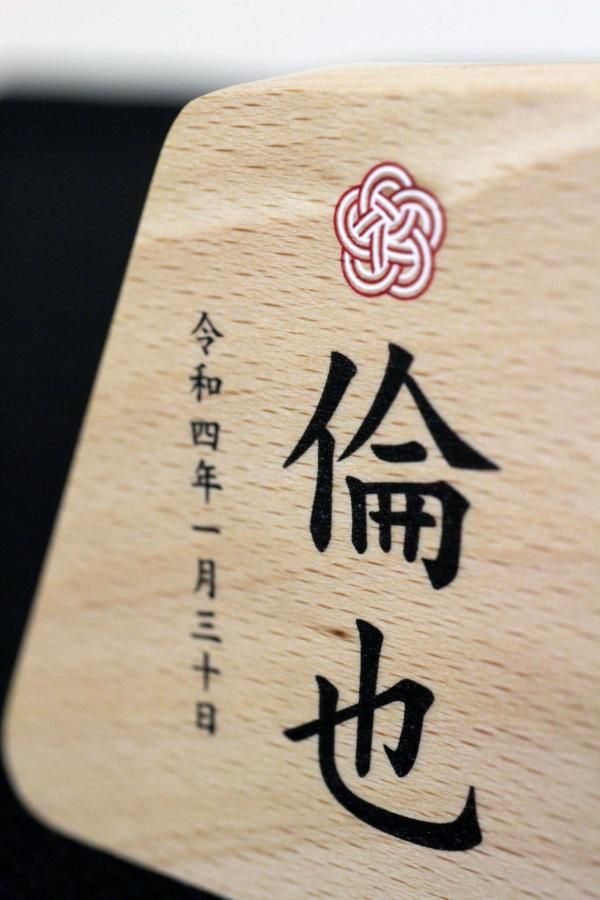 倫也
令和四年一月三十日